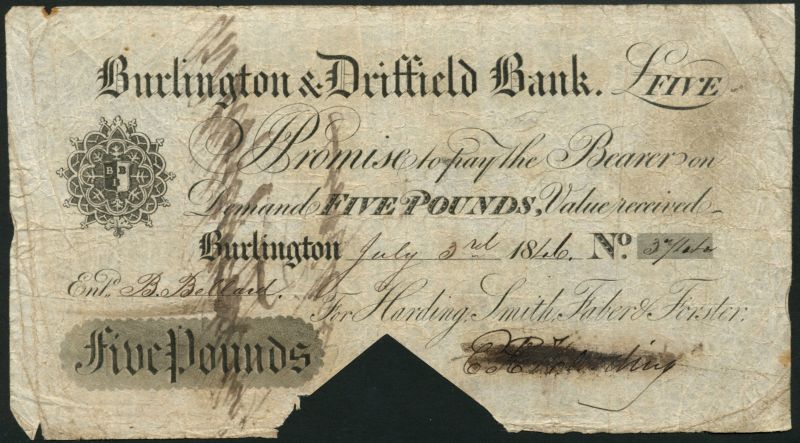 Burlington & Driffield Bank. £FIVE
I Promise to pay the Bearer on
Demand FIVE POUNDS, Value received
Burlington July 3rd 1846. No.
Entd. B. Bellard.
For Harding, Smith, Faber & Forster.
Five Pounds
Harding